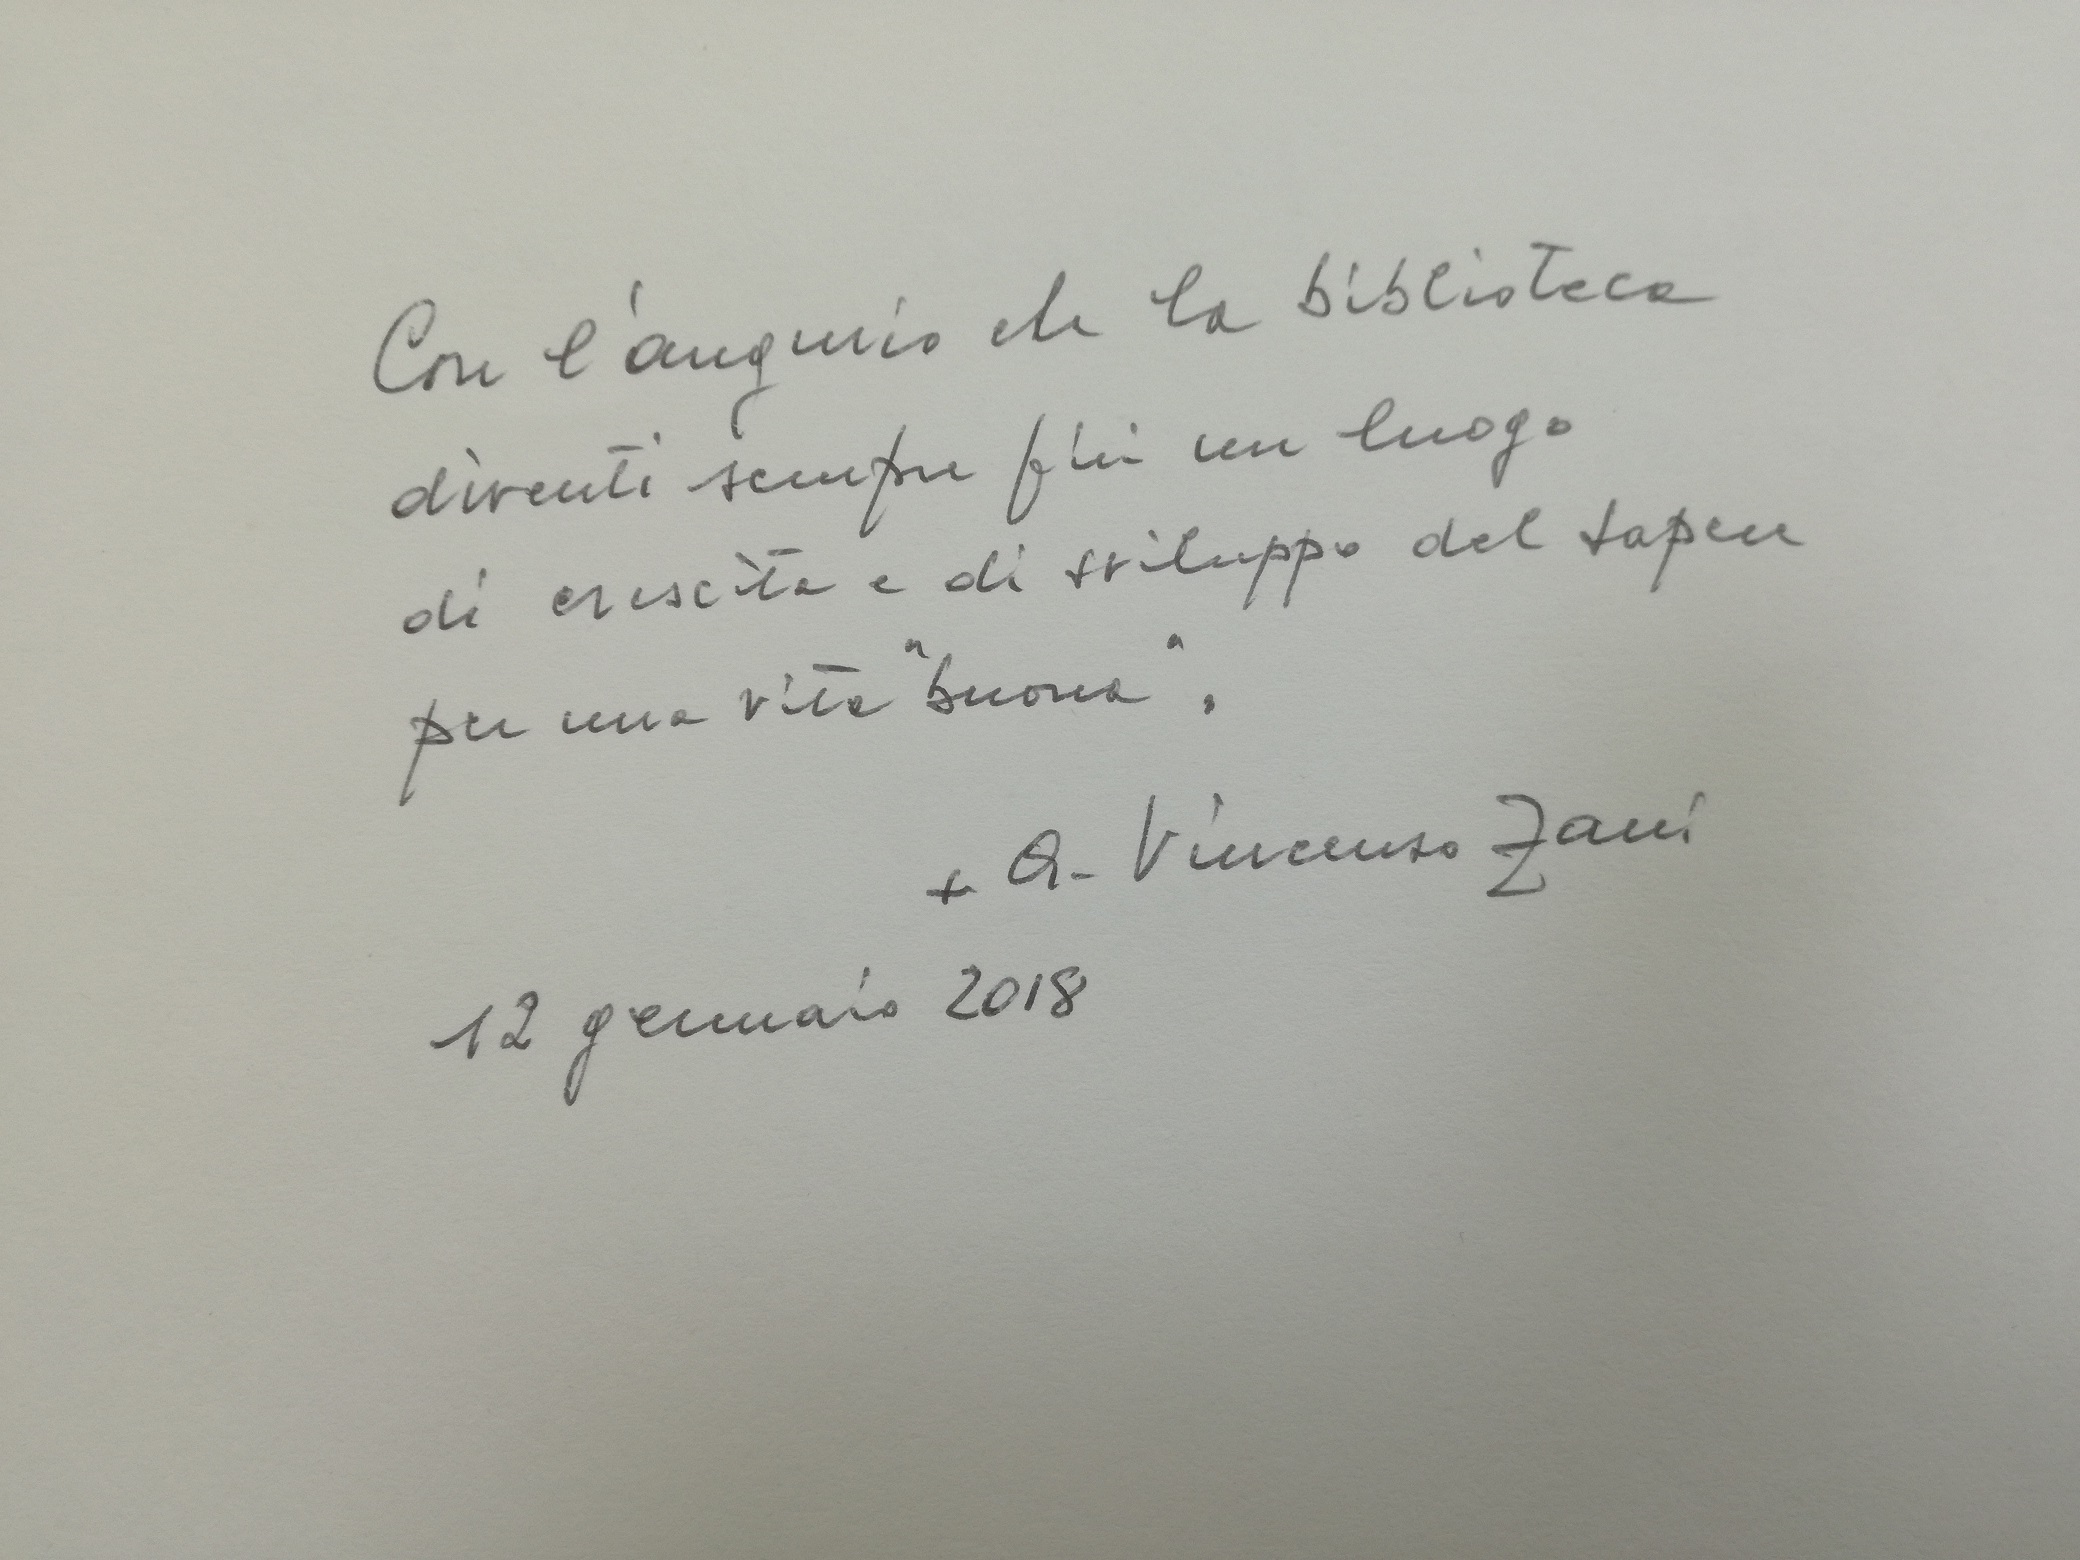 Con l'augurio che la biblioteca
diventi sempre più un luogo
di crescita e di sviluppo del sapere
per una vita "buona".
+ A. Vincenzo Zani
12 gennaio 2018